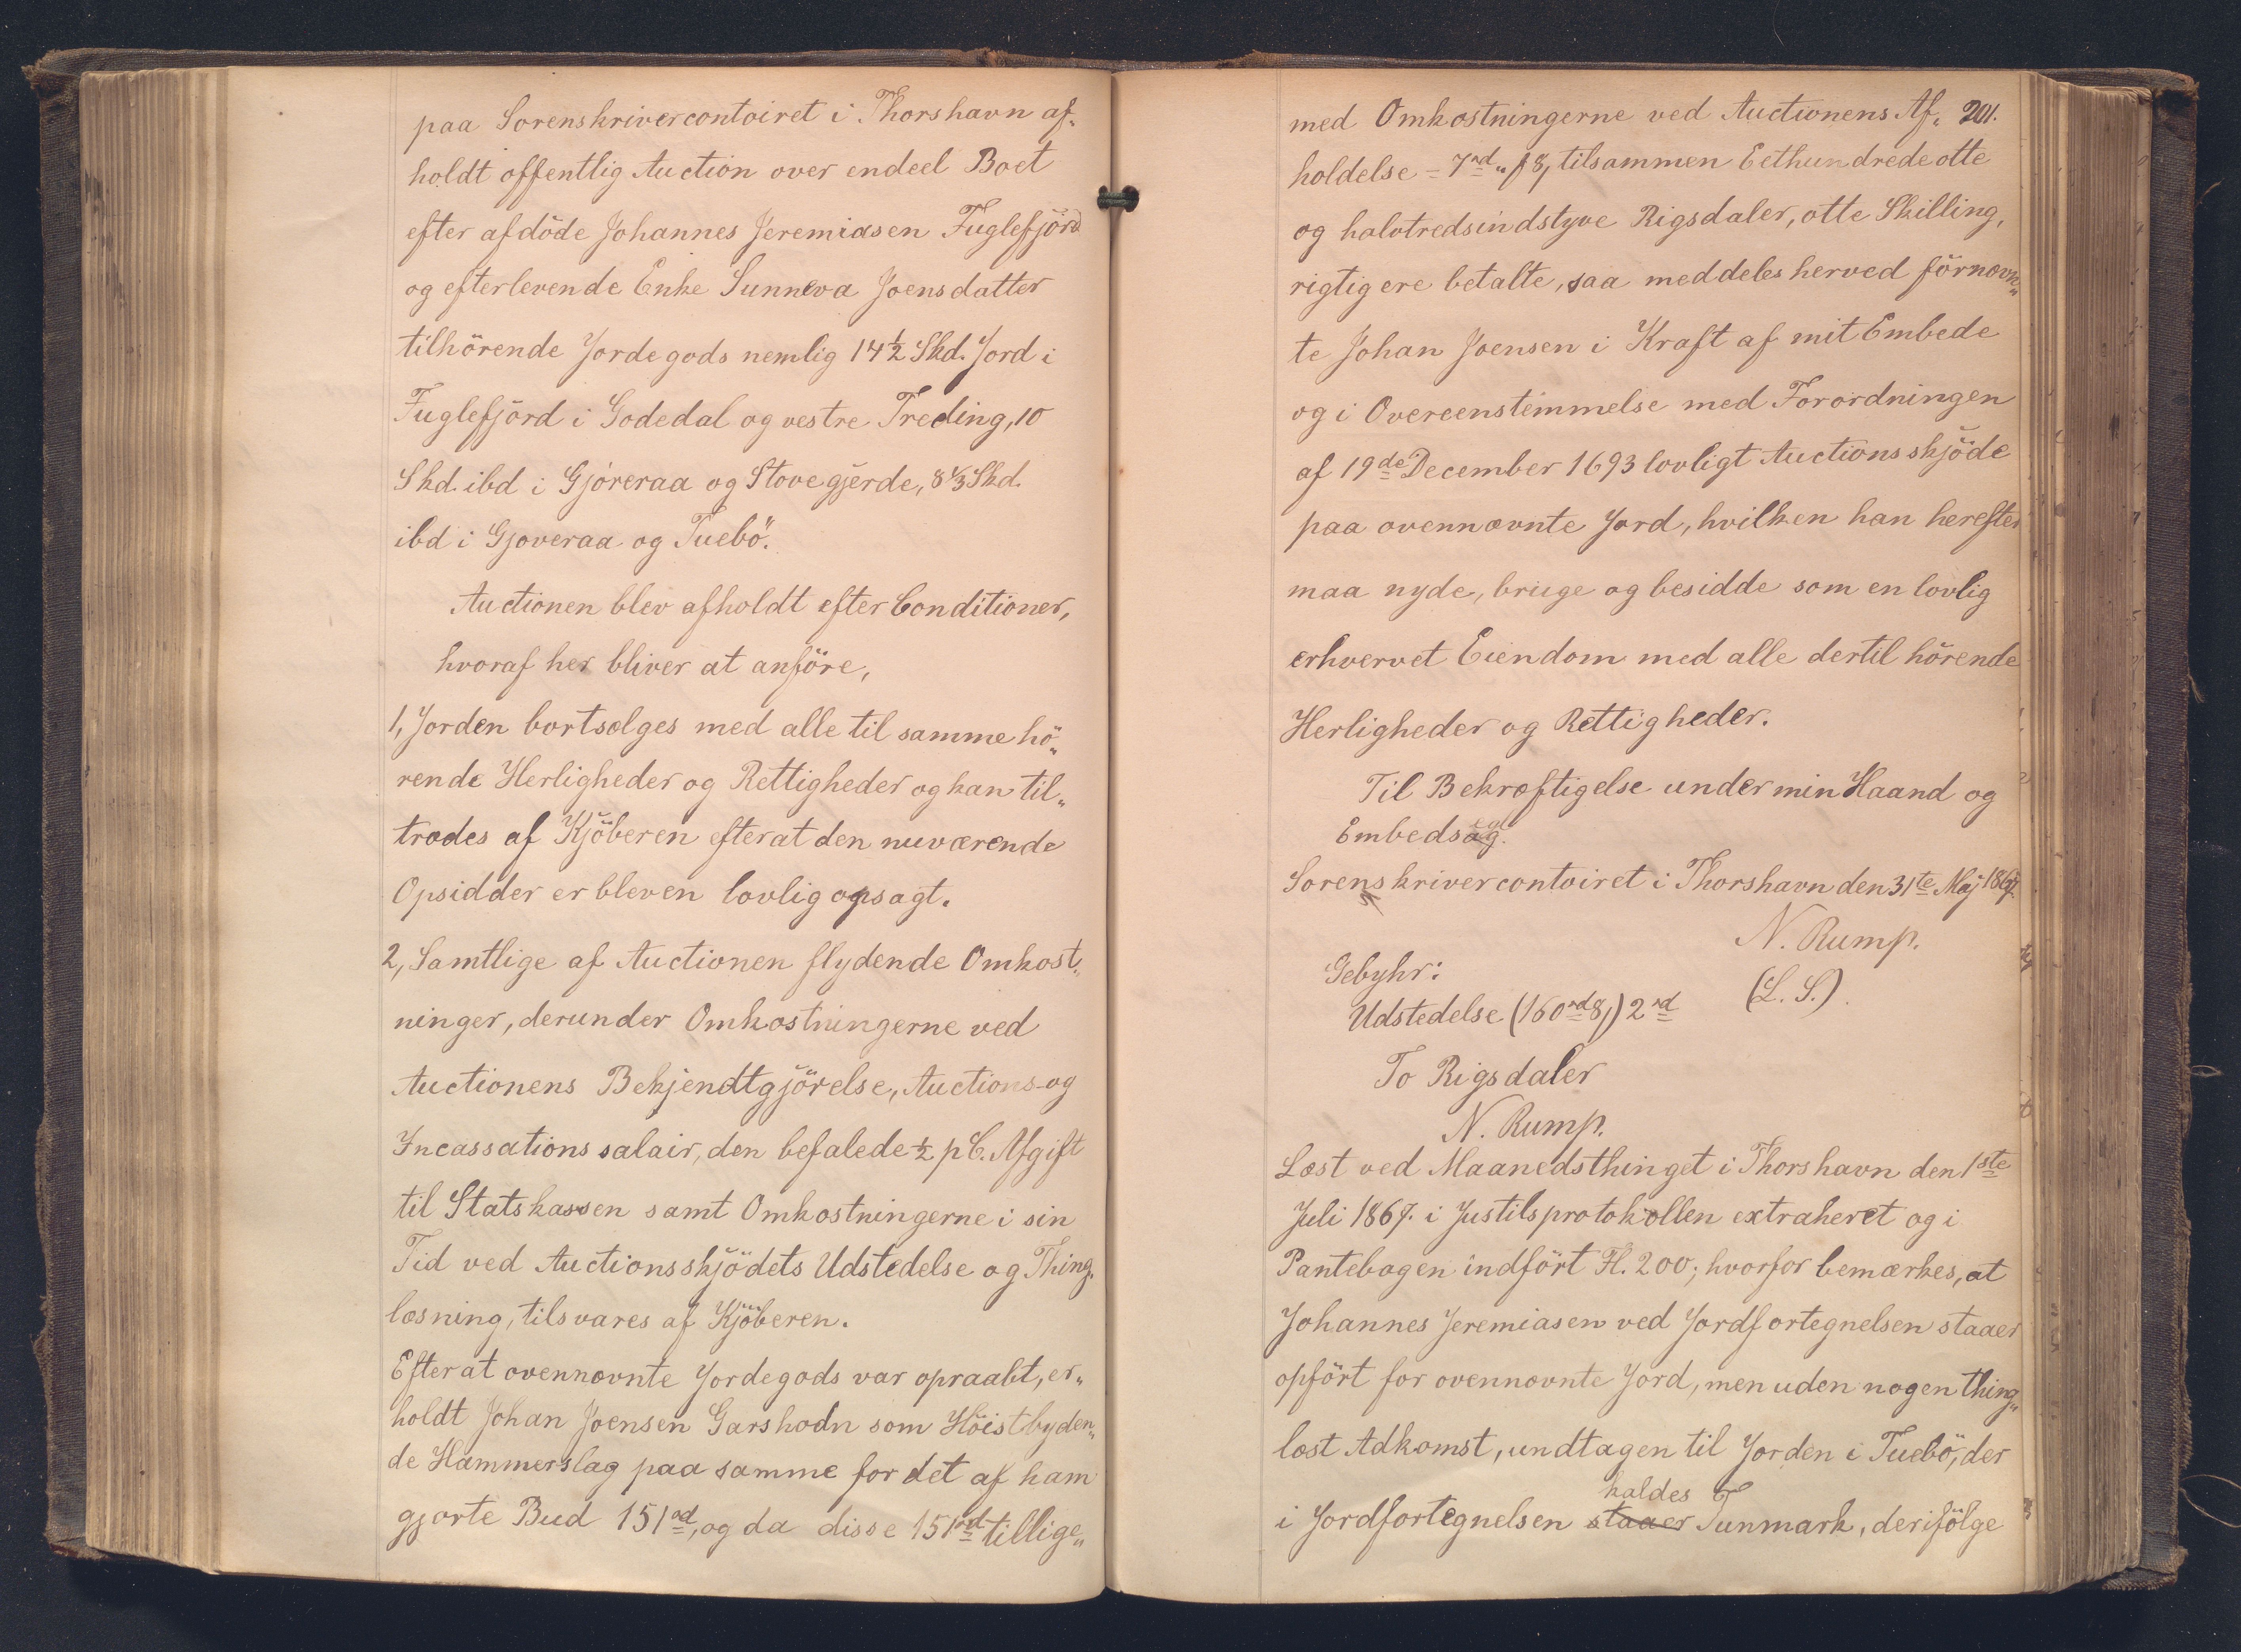 paa Sorenskrivercontoiret i Thorshavn af„
holdt offentlig Auction over endeel Boet
efter afdöde Johannes Jeremiasen Fuglefjörd
og efterlevende Enke Sunneva Joensdatter
tilhörende Jordegods nemlig 14½ Skd. Jord i
Fuglefjörd i Godedal og vestre Treding, 10
Skd. ibd i Gjöreraa og Stovegjerde, 8⅓ Skd.
ibd i Gjoveraa og Tuebö.
Auctionen blev afholdt efter Conditioner,
hvoraf her bliver at anföre,
1, Jorden bortsælges med alle til samme hö„
rende Herligheder og Rettigheder og kan til„
trædes af Kjöberen efterat den nuværende
Opsidder er bleven lovlig opsagt.
2, Samtlige af Auctionen flydende Omkost„
ninger, derunder Omkostningerne ved
Auctionens Bekjendtgjörelse, Auctions- og
Incassationssalair, den befalede ½ pC. Afgift
til Statskassen samt Omkostningerne i sin
Tid ved Auctionsskjödets Udstedelse og Thing„
læsning, tilsvares af Kjöberen.
Efterat ovennævnte Jordegods var opraabt, er„
holdt Johan Joensen Garshodn som Höistbyden„
de Hammerslag paa samme for det af ham
gjorte Bud 151 rd, og da disse 151 rd tillige„
med Omkostningerne ved Auctionens Af„ 201.
holdelse = 7 rd „ ß 8, tilsammen Eethundrede otte
og halvtredsindstyve Rigsdaler, otte Skilling,
rigtig ere betalte, saa meddeles herved förnævn„
te Johan Joensen i Kraft af mit Embede
og i Overeenstemmelse med Forordningen
af 19de December 1693 lovligt Auctionsskjöde
paa ovennævnte Jord, hvilken han herefter
maa nyde, bruge og besidde som en lovlig
erhvervet Eiendom med alle dertil hörende
Herligheder og Rettigheder.
Til Bekræftigelse under min Haand og
Embedssegl.
Sorenskrivercontoiret i Thorshavn den 31te Maj 1867.
N. Rump.
(L. S.)
Gebyhr:
Udstedelse (160 rd 8,) 2 rd
To Rigsdaler
N. Rump.
Læst ved Maanedsthinget i Thorshavn den 1ste
Juli 1867. i Justitsprotokollen extraheret og i
Pantebogen indfört Fl. 200; hvorfor bemærkes, at
Johannes Jeremiasen ved Jordfortegnelsen staaer
opfört for ovennævnte Jord, men uden nogen thing„
læst Adkomst, undtagen til Jorden i Tuebö, der
kaldes
i Jordfortegnelsen staaer Tunmark, der ifölge